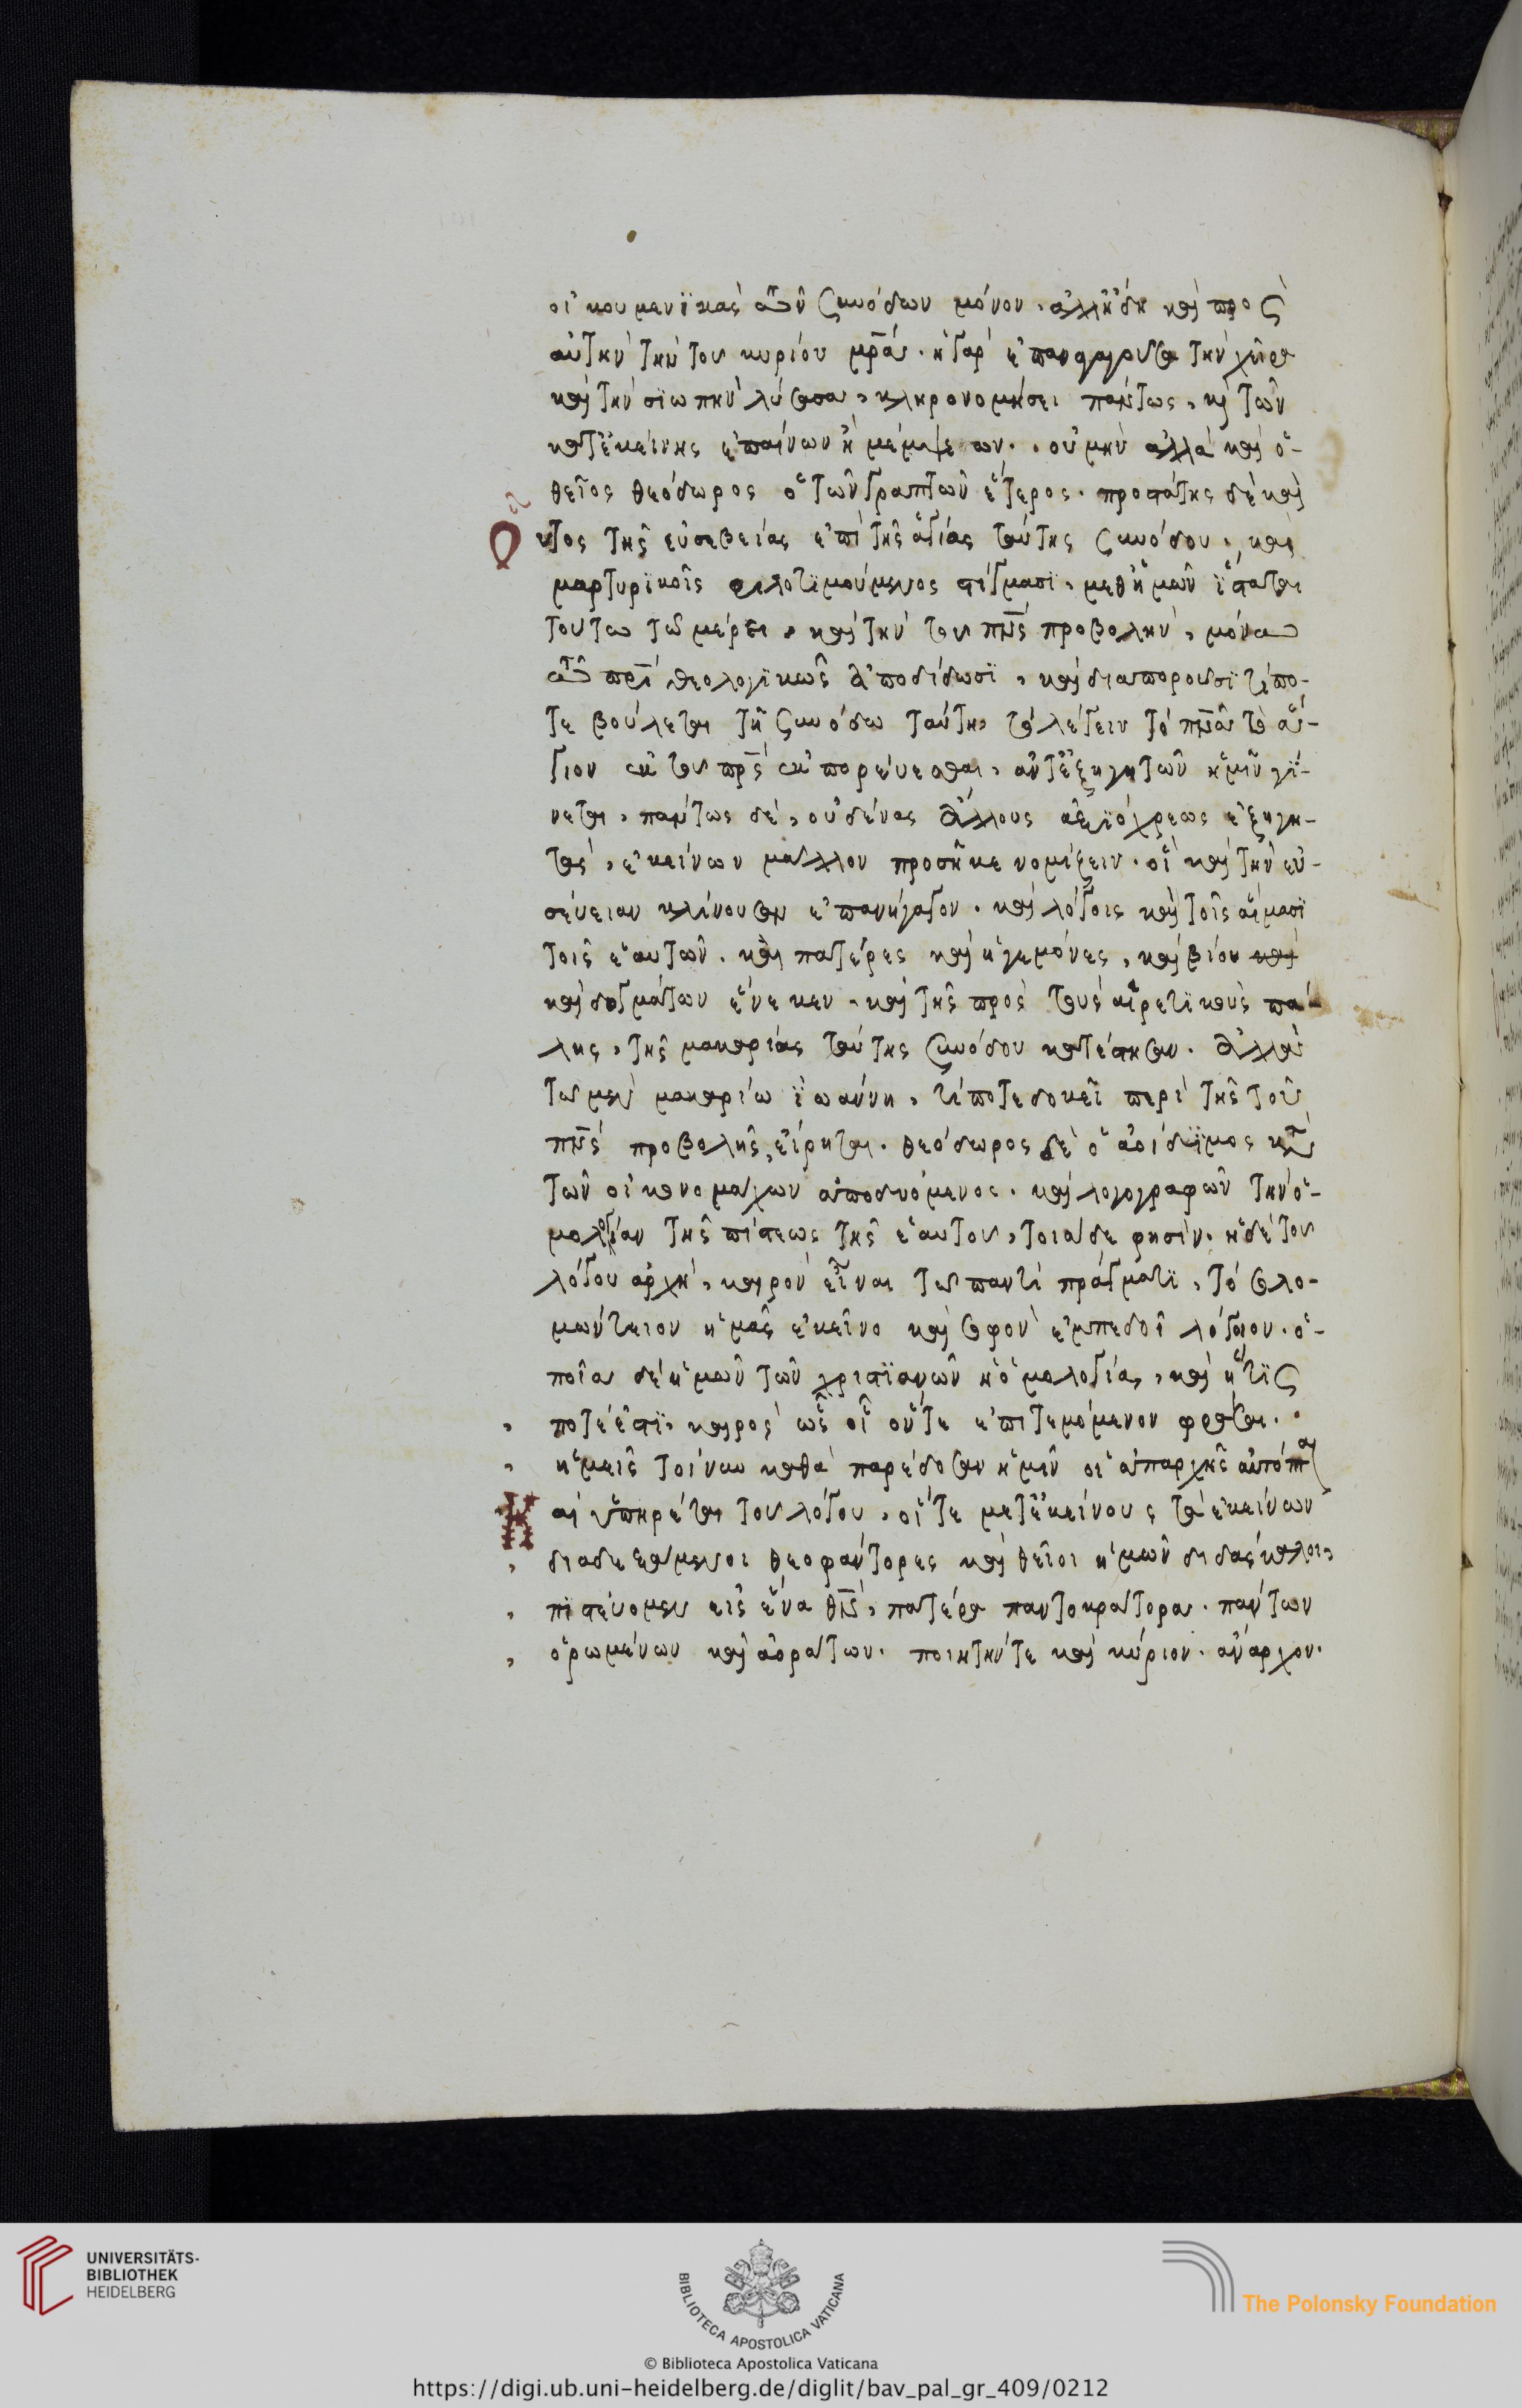 οἰκουμενϊκὰς αὐτῶν συνόδων μόνον, ἀλλ' ἤδη καὶ πρὸς
αὐτὴν τὴν τοῦ κυρίου μρᾱ́. ἡ γὰρ ἐπαναγαγοῦσα τὴν χεῖρα
καὶ τὴν σϊωπὴν λύσασα, κληρονομήσει πάντως, καὶ τῶν
κατ' ἐκείνης ἐπαίνων ἢ μέμψεων. οὐ μὴν ἀλλὰ καὶ ὁ-
θεῖος θεόδωρος ὁ τῶν γραπτῶν ἕτερος. προστάτης δὲ καὶ
οὗτος τῆς εὐσεβείας ἐπὶ τῆς ἁγίας ταύτης συνόδου, καὶ
μαρτυρϊκοῖς φιλοτϊμούμενος στίγμασϊ, μεθ' ἡμῶν ἵσταται
τούτω τῶ μέρει, καὶ τὴν τοῦ πνς̄ προβολὴν, μόνω
αὐτῶ πρῑ̀ θεολογϊκῶς ἀποδίδωσϊ, καὶ διαποροῦσϊ τί πο-
τε βούλεται τῆ συνόδω ταύτη, τὸ λέγειν τὸ πνᾱ τὸ ἅ-
γιον ἐκ τοῦ πρς̄ ἐκπορεύεσθαι, ἀντ' ἐξηγητῶν ἡμῖν γί-
νεται, πάντως δὲ, οὐδένας ἄλλους ἀξϊόχρεως ἐξηγη-
τὰς, ἐκείνων μᾶλλον προσῆκε νομίζειν. οἳ καὶ τὴν εὐ-
σέβειαν κλίνουσαν ἐπανήγαγον. καὶ λόγοις καὶ τοῖς αἵμασϊ
τοῖς ἑαυτῶν. καὶ πατέρες καὶ ἡγεμόνες, καὶ βίου καὶ
καὶ δογμάτων ἕνεκεν, καὶ τῆς πρὸς τοὺς αἱρετϊκοὺς πά-
λης, τῆς μακαρίας ταύτης συνόδου κατέστησαν. ἀλλὰ
τῶ μὲν μακαρίω ἰωάννη, τί ποτε δοκεῖ περὶ τῆς τοῦ
πνς̄ προβολῆς, εἴρηται. θεόδωρος δὲ ὁ ἀοίδϊμος κατὰ
τῶν εἰκονομάχων ἀποδυόμενος. καὶ λογογραφῶν τὴν ὁ-
μολογίαν τῆς πίστεως τῆς ἑαυτοῦ, τοιάδε φησίν. ἡ δὲ τοῦ
λόγου ἀρχὴ, καιρὸν εἶναι τῶ παντὶ πράγματϊ, τὸ σολο-
μώντειον ἡμᾶς ἐκεῖνο καὶ σοφὸν ἐμπεδοῖ λόγιον. ὁ-
ποία δὲ ἡμῶν τῶν χριστϊανῶν ἡ ὁμολογία, καὶ ἥτϊς
ποτέ ἐστϊ, καιρὸς ὡς οἷόν τε ἐπιτεμόμενον φράσαι.
ἡμεῖς τοίνυν καθὰ παρέδοσαν ἡμῖν οἱ ἀπαρχῆς αὐτόπται
καὶ ὑπηρέται τοῦ λόγου, οἵ τε μετ' ἐκείνους τὰ ἐκείνων
διαδεξάμενοι θεοφάντορες καὶ θεῖοι ἡμῶν διδάσκαλοι,
πιστεύομεν εἰς ἕνα θν̄, πατέρα παντοκράτορα. πάντων
ὁρωμένων καὶ ἀοράτων. ποιητήν τε καὶ κύριον. ἄναρχον.
UNIVERSITÄTS-
BIBLIOTHEK
HEIDELBERG
BIBLIOTECA APOSTOLICA VATICANA
The Polonsky Foundation
© Biblioteca Apostolica Vaticana
https://digi.ub.uni-heidelberg.de/diglit/bav_pal_gr_409/0212